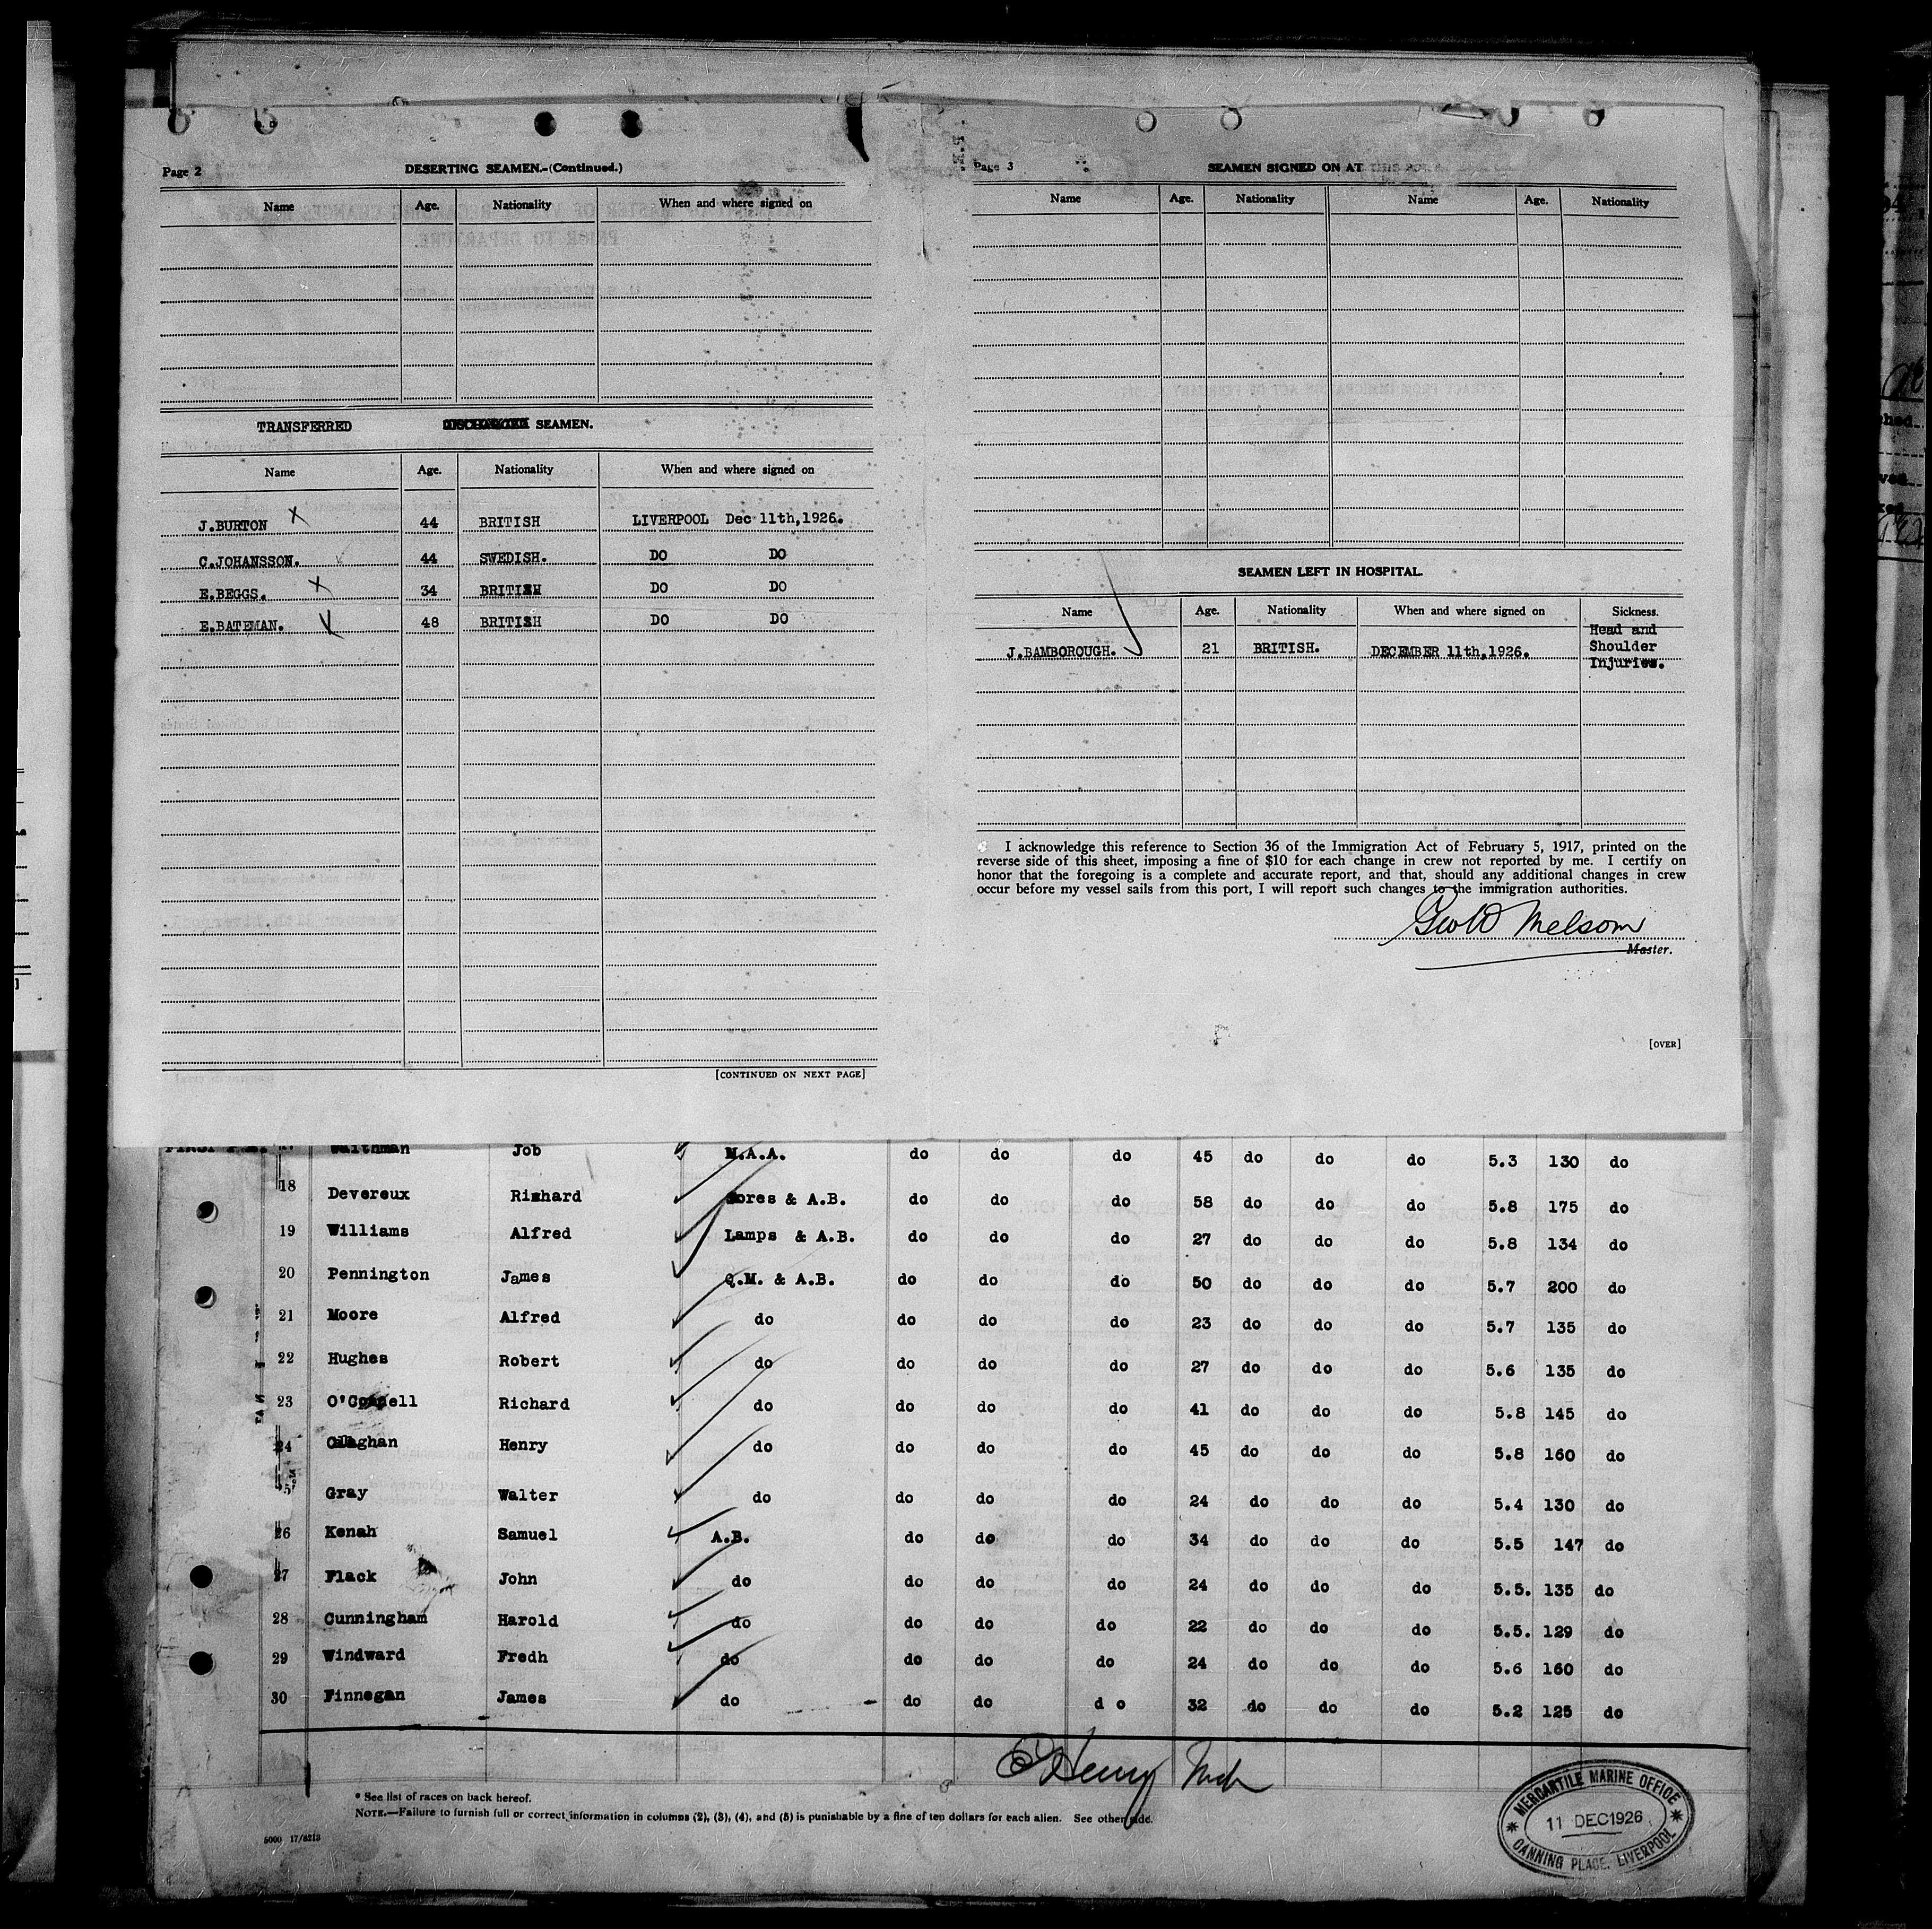 Page 2
DESERTING SEAMEN.-(Continued.)
Name Age. Nationality When and where signed on
TRANSFERRED SEAMEN.
Name Age. Nationality When and where signed on
J.BURTON X 44 BRITISH LIVERPOOL Dec 11th,1926.
C.JOHANSSON. 44 SWEDISH. DO DO
E.BEGGS. X 34 BRITISH DO DO
E.BATEMAN. 48 BRITISH DO DO
[CONTINUED ON NEXT PAGE]
Page 3
SEAMEN SIGNED ON AT THIS PORT
Name Age. Nationality Name Age. Nationality
SEAMEN LEFT IN HOSPITAL.
Name Age. Nationality When and where signed on Sickness.
J.BAMBOROUGH. 21 BRITISH. DECEMBER 11th,1926. Head and
Shoulder
Injuries.
I acknowledge this reference to Section 36 of the Immigration Act of February 5, 1917, printed on the
reverse side of this sheet, imposing a fine of $10 for each change in crew not reported by me. I certify on
honor that the foregoing is a complete and accurate report, and that, should any additional changes in crew
occur before my vessel sails from this port, I will report such changes to the immigration authorities.
Melsom
Master.
[OVER]
Waithman Job M.A.A. do do do 45 do do do 5.3 130 do
18 Devereux Richard Sores & A.B. do do do 58 do do do 5.8 175 do
19 Williams Alfred Lamps & A.B. do do do 27 do do do 5.8 134 do
20 Pennington James Q.M. & A.B. do do do 50 do do do 5.7 200 do
21 Moore Alfred do do do do 23 do do do 5.7 135 do
22 Hughes Robert do do do do 27 do do do 5.6 135 do
23 O'Connell Richard do do do do 41 do do do 5.8 145 do
24 Callaghan Henry do do do do 45 do do do 5.8 160 do
5 Gray Walter do do do do 24 do do do 5.4 130 do
26 Kenah Samuel A.B. do do do 34 do do do 5.5 147 do
27 Flack John do do do do 24 do do do 5.5. 135 do
28 Cunningham Harold do do do do 22 do do do 5.5. 129 do
29 Windward Fredh do do do do 24 do do do 5.6 160 do
30 Finnegan James do do do d o 32 do do do 5.2 125 do
Henry
* See list of races on back hereof.
NOTE.—Failure to furnish full or correct information in columns (2), (3), (4), and (5) is punishable by a fine of ten dollars for each alien. See other side.
5000 17/8213
MERCANTILE MARINE OFFICE
11 DEC 1926
CANNING PLACE. LIVERPOOL